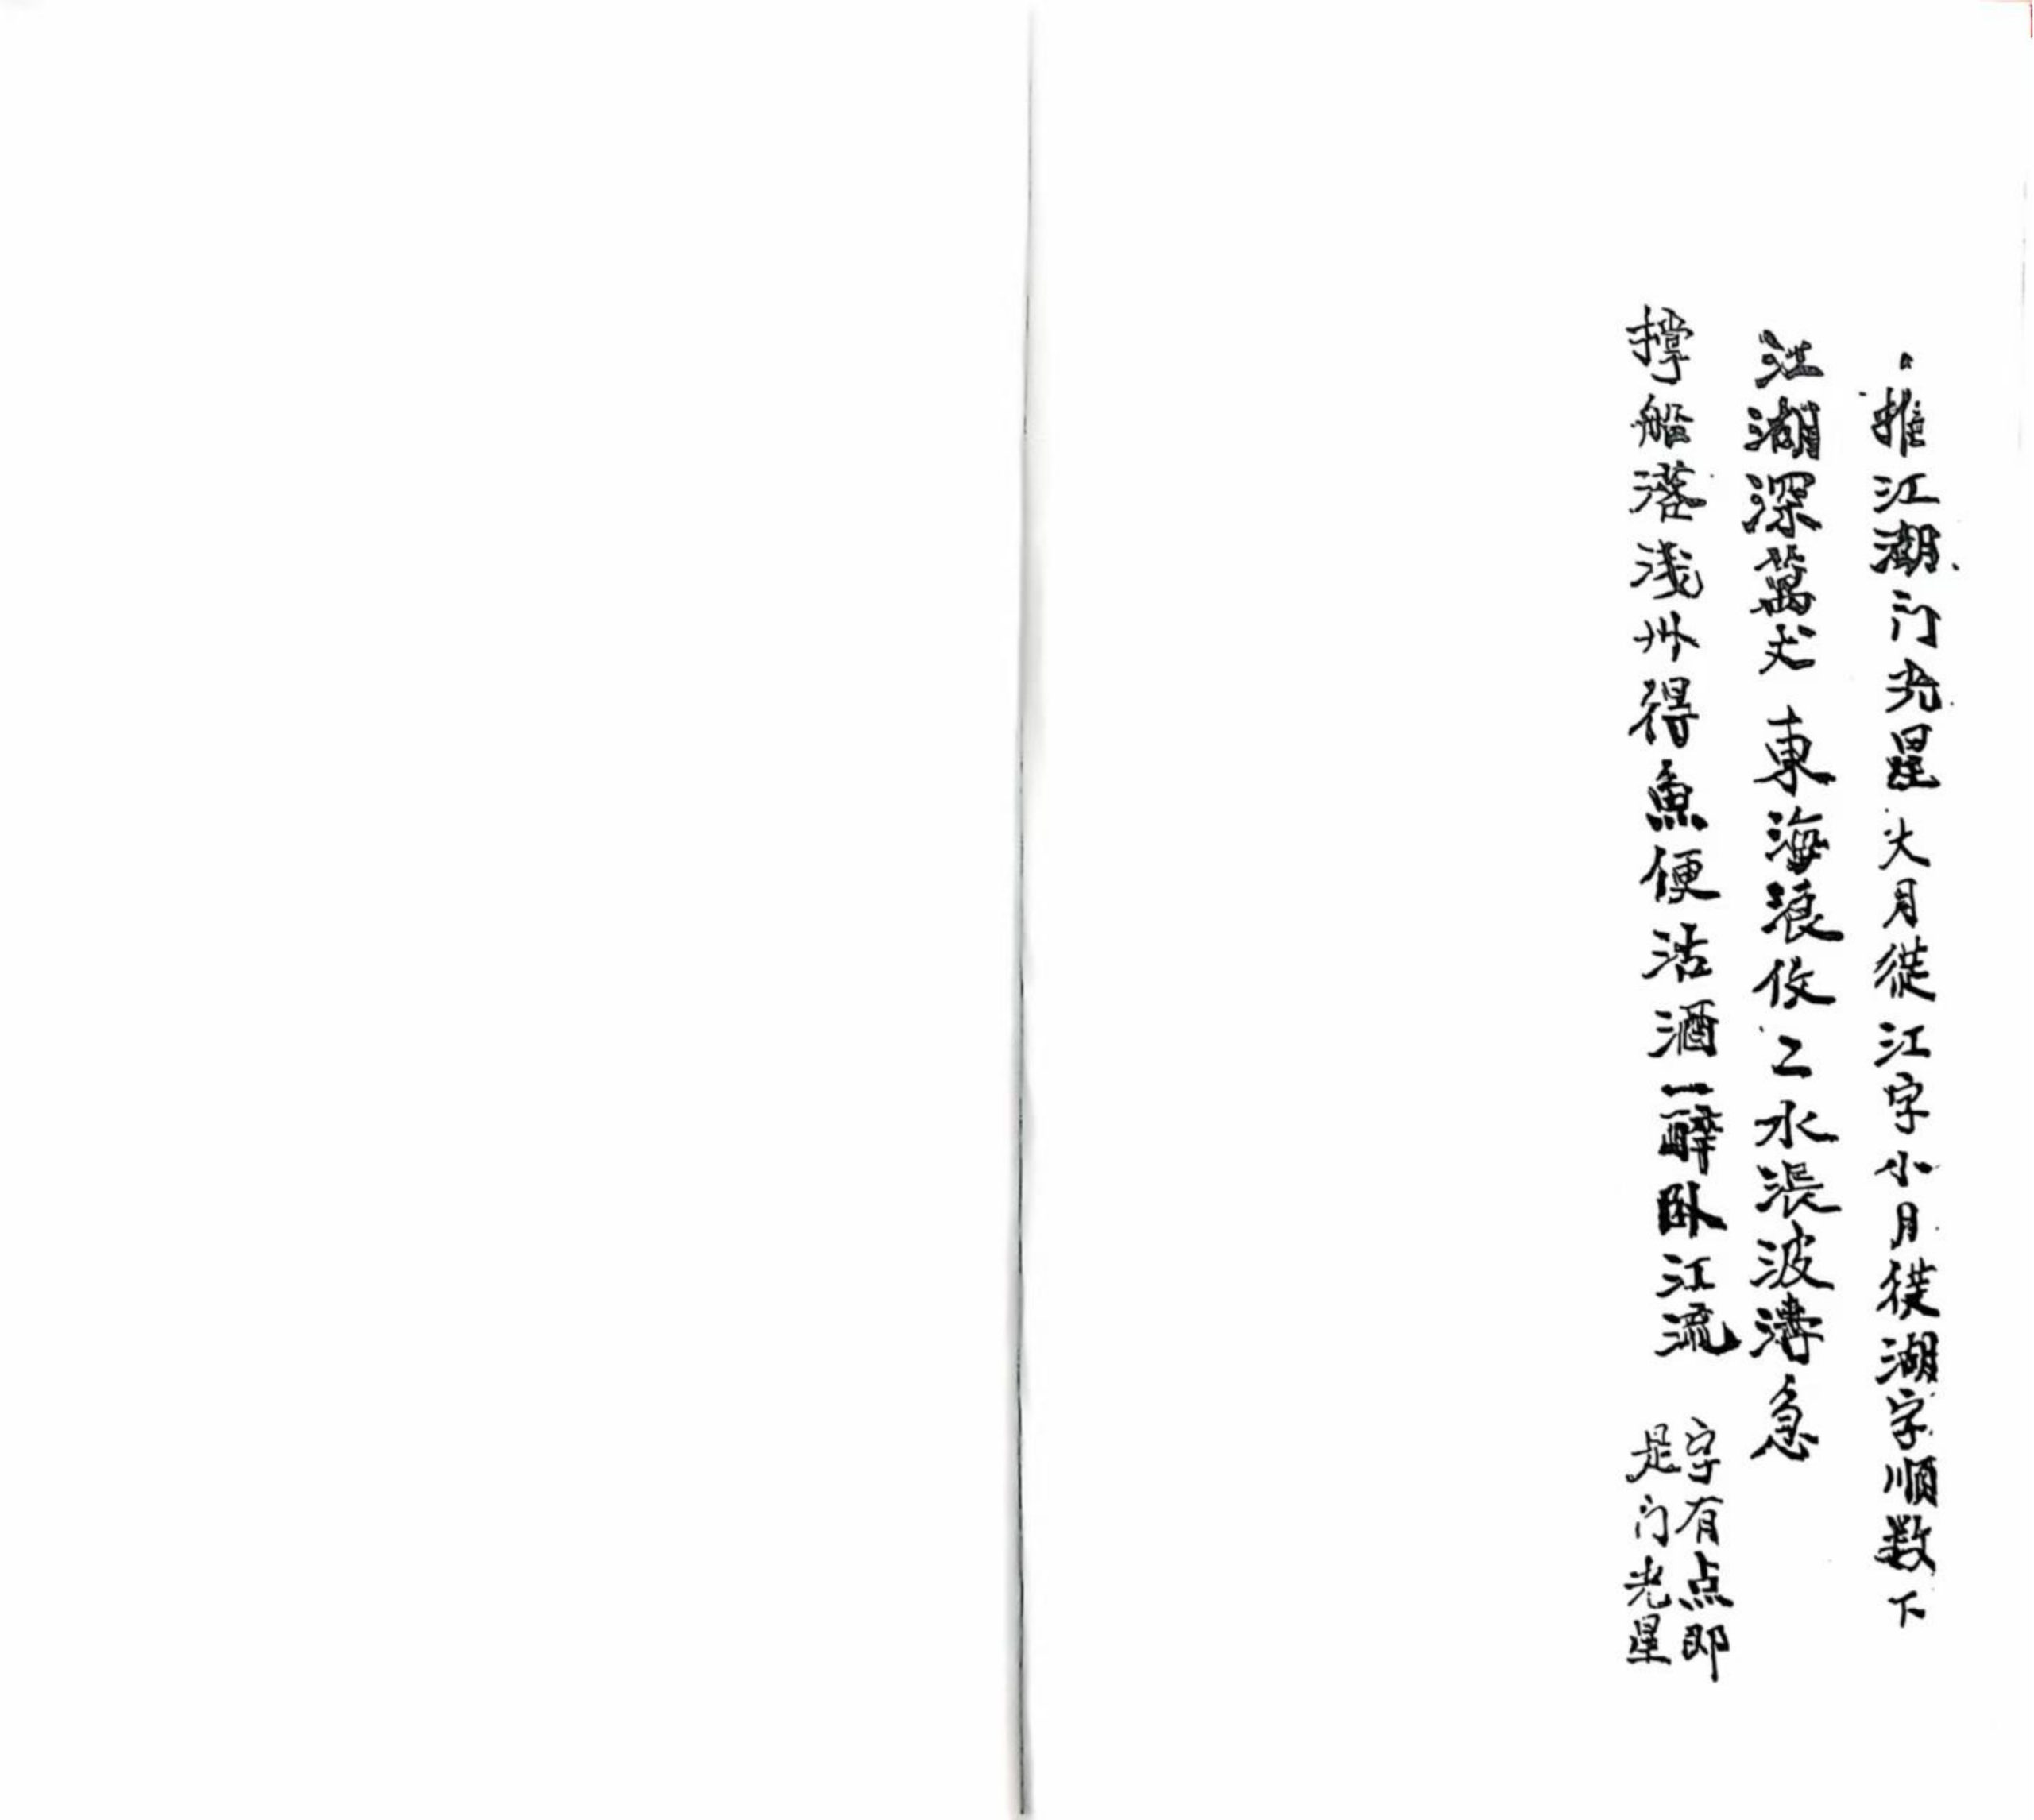 推江湖门光星大月從江字小月從湖字順数下
江湖深萬丈東海浪攸二水漲波濤急
撑船灣淺州得魚便沽酒一醉臥江流
字有点即
是门光星